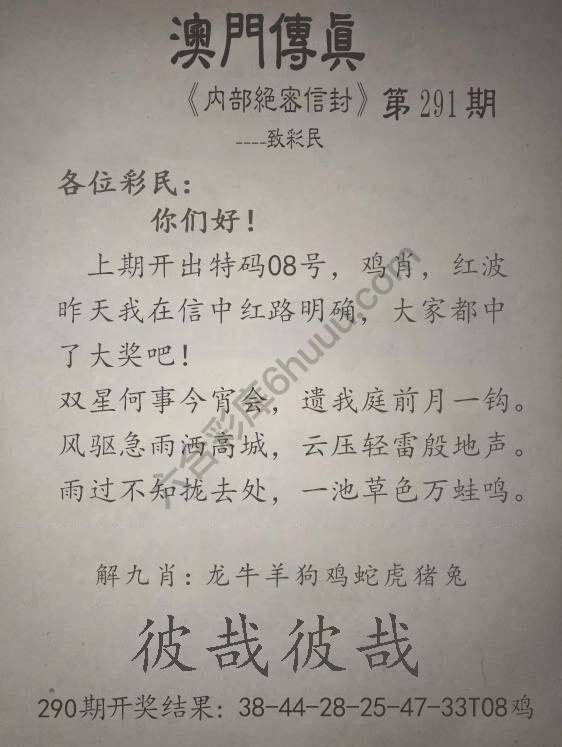 澳門傳真
《内部絕密信封》第291期
----致彩民
各位彩民：
你们好！
上期开出特码08号，鸡肖，红波
昨天我在信中红路明确，大家都中
了大奖吧！
双星何事今宵会，遗我庭前月一钩。
风驱急雨洒高城，云压轻雷殷地声。
雨过不知拢去处，一池草色万蛙鸣。
六合彩库6huuu.com
解九肖：龙牛羊狗鸡蛇虎猪兔
彼哉彼哉
290期开奖结果：38-44-28-25-47-33T08鸡